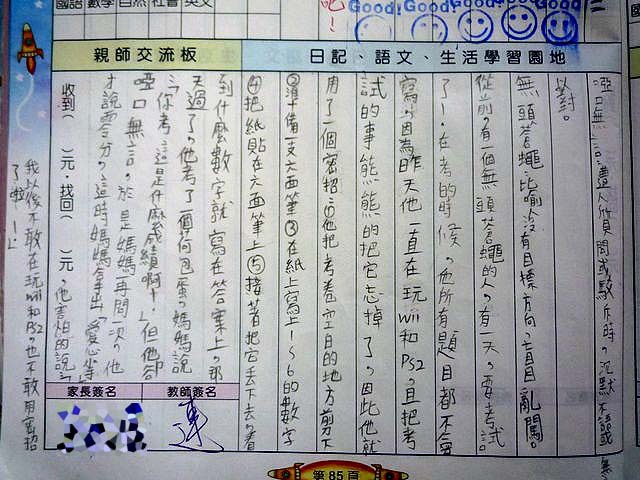 國語 數學 自然 社會 英文
吧!
Good! Good! Good! Good! Good!
親師交流板
日記、語文、生活學習園地
啞口無言:遭人質問或駁斥時,沉默不語或無
必對。
無頭蒼蠅:比喻沒有目標方向,盲目亂闖。
從前,有一個無頭蒼蠅的人,有一天,要考試
了!在考的時候,他所有題目都不會
寫,因為昨天他一直在玩wii和PS2,且把考
試的事熊熊的把它忘掉了,因此他就
用了一個密招:①他把考卷空白的地方剪下
②準備一支六面筆③在紙上寫上1~6的數字
④把紙貼在六面筆上⑤接著把它丟下去,看
到什麼數字就寫在答案上,那
天過了,他考了一個荷包蛋,媽媽說
:「你考這是什麼成績啊!」但他卻
啞口無言,於是媽媽再問一次,他
才說零分,這時媽媽拿出「愛心
收到( )元,找回( )元,他害怕的說:「
我以後不敢在玩wii和PS2,也不敢用密招
了啦!」
家長簽名
教師簽名
第85頁